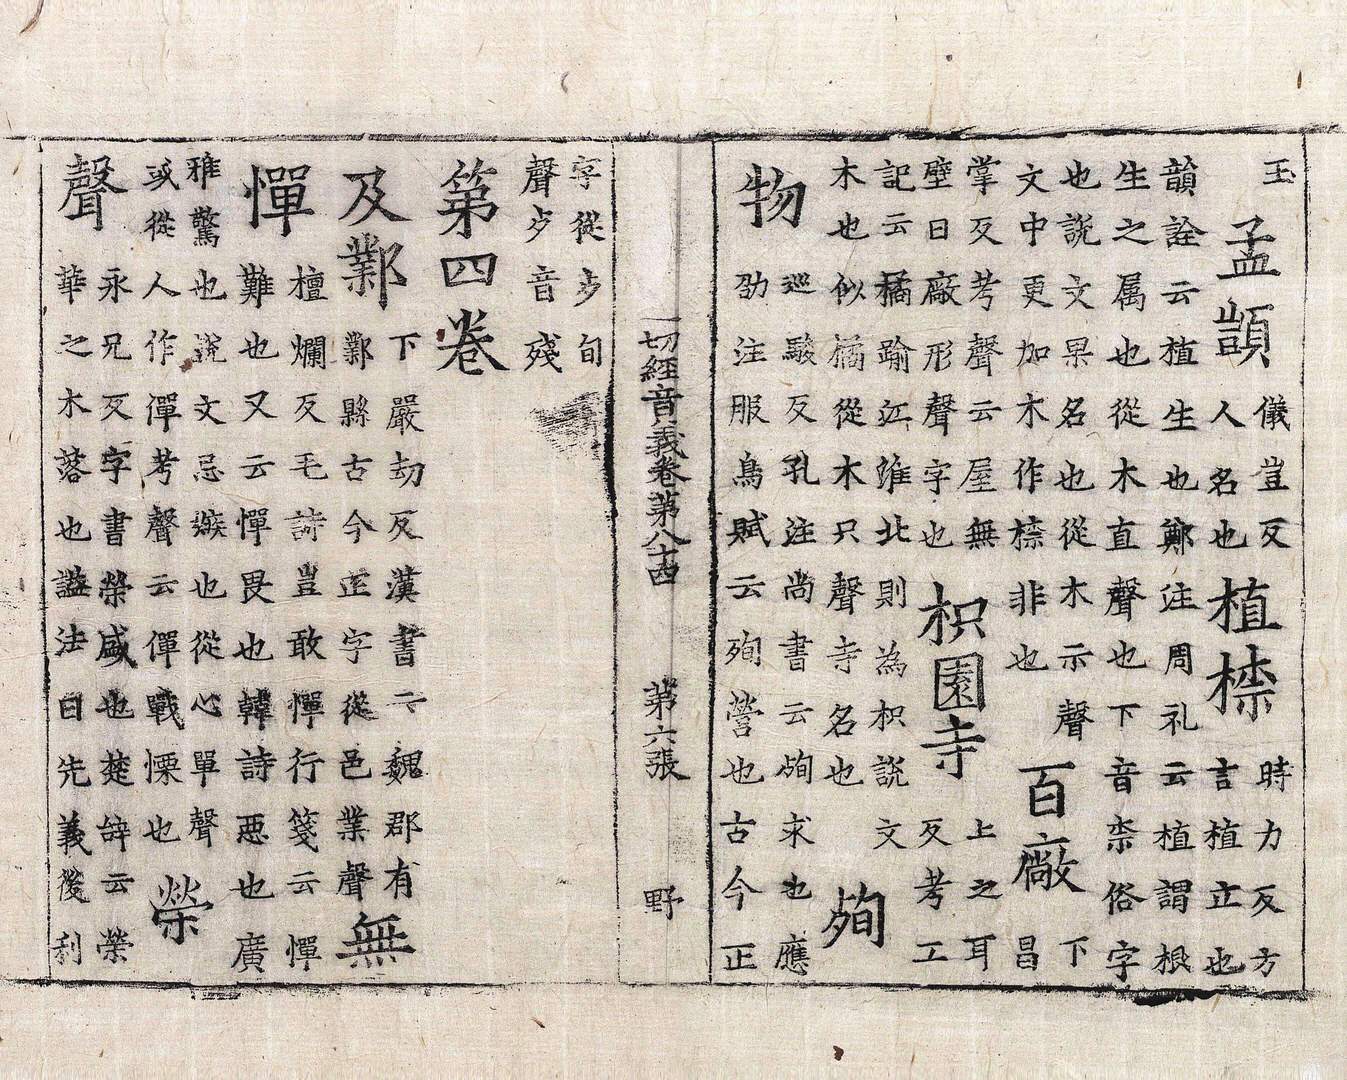 玉
孟顗
儀豈反
人名也
植㮈
時力反方
言植立也
韻詮云植生也鄭注周礼云植謂根
生之属也從木直聲也下音柰俗字
也說文果名也從木示聲
文中更加木作㮈非也
百廠
下
昌
掌反考聲云屋無
壁曰廠形聲字也
枳園寺
上之耳
反考工
記云橘踰江淮北則為枳說文
木也似橘從木只聲寺名也
殉
物
巡駿反孔注尚書云殉求也應
劭注服鳥賦云殉營也古今正
一切經音義卷第八十四 第六張 野
字從歺旬
聲歺音殘
第四卷
及鄴
下嚴刧反漢書云魏郡有
鄴縣古今正字從邑業聲
無
憚
檀爛反毛詩豈敢憚行箋云憚
難也又云憚畏也韓詩惡也廣
雅驚也說文忌嫉也從心單聲
或從人作僤考聲云僤戰慄也
榮
聲
永兄反字書榮盛也楚辞云榮
華之木落也謚法曰先義後利